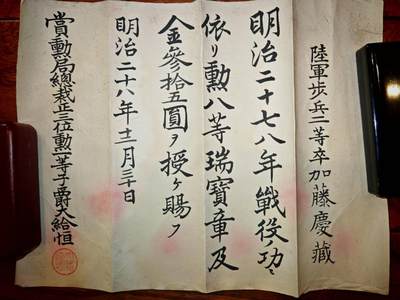 陸軍歩兵二等卒加藤慶藏
明治二十七八年戦役ノ功ニ
依リ勲八等瑞寶章及
金參拾五圓ヲ授ケ賜フ
明治二十八年十二月三十日
賞勲局總裁正三位勲一等子爵大給恒